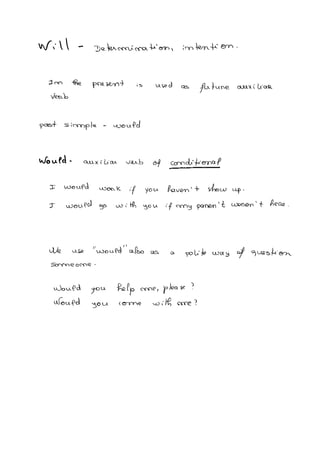 Will - Determination, intention.
Inn the present is used as future auxiliar
verb
past simple - would
Would - auxiliar verb of conditional
I would work if you haven't show up.
I would go with you if my parent's weren't here.
We use "would" also as a polite way of question
someone.
Would you help me, please?
Would you come with me?